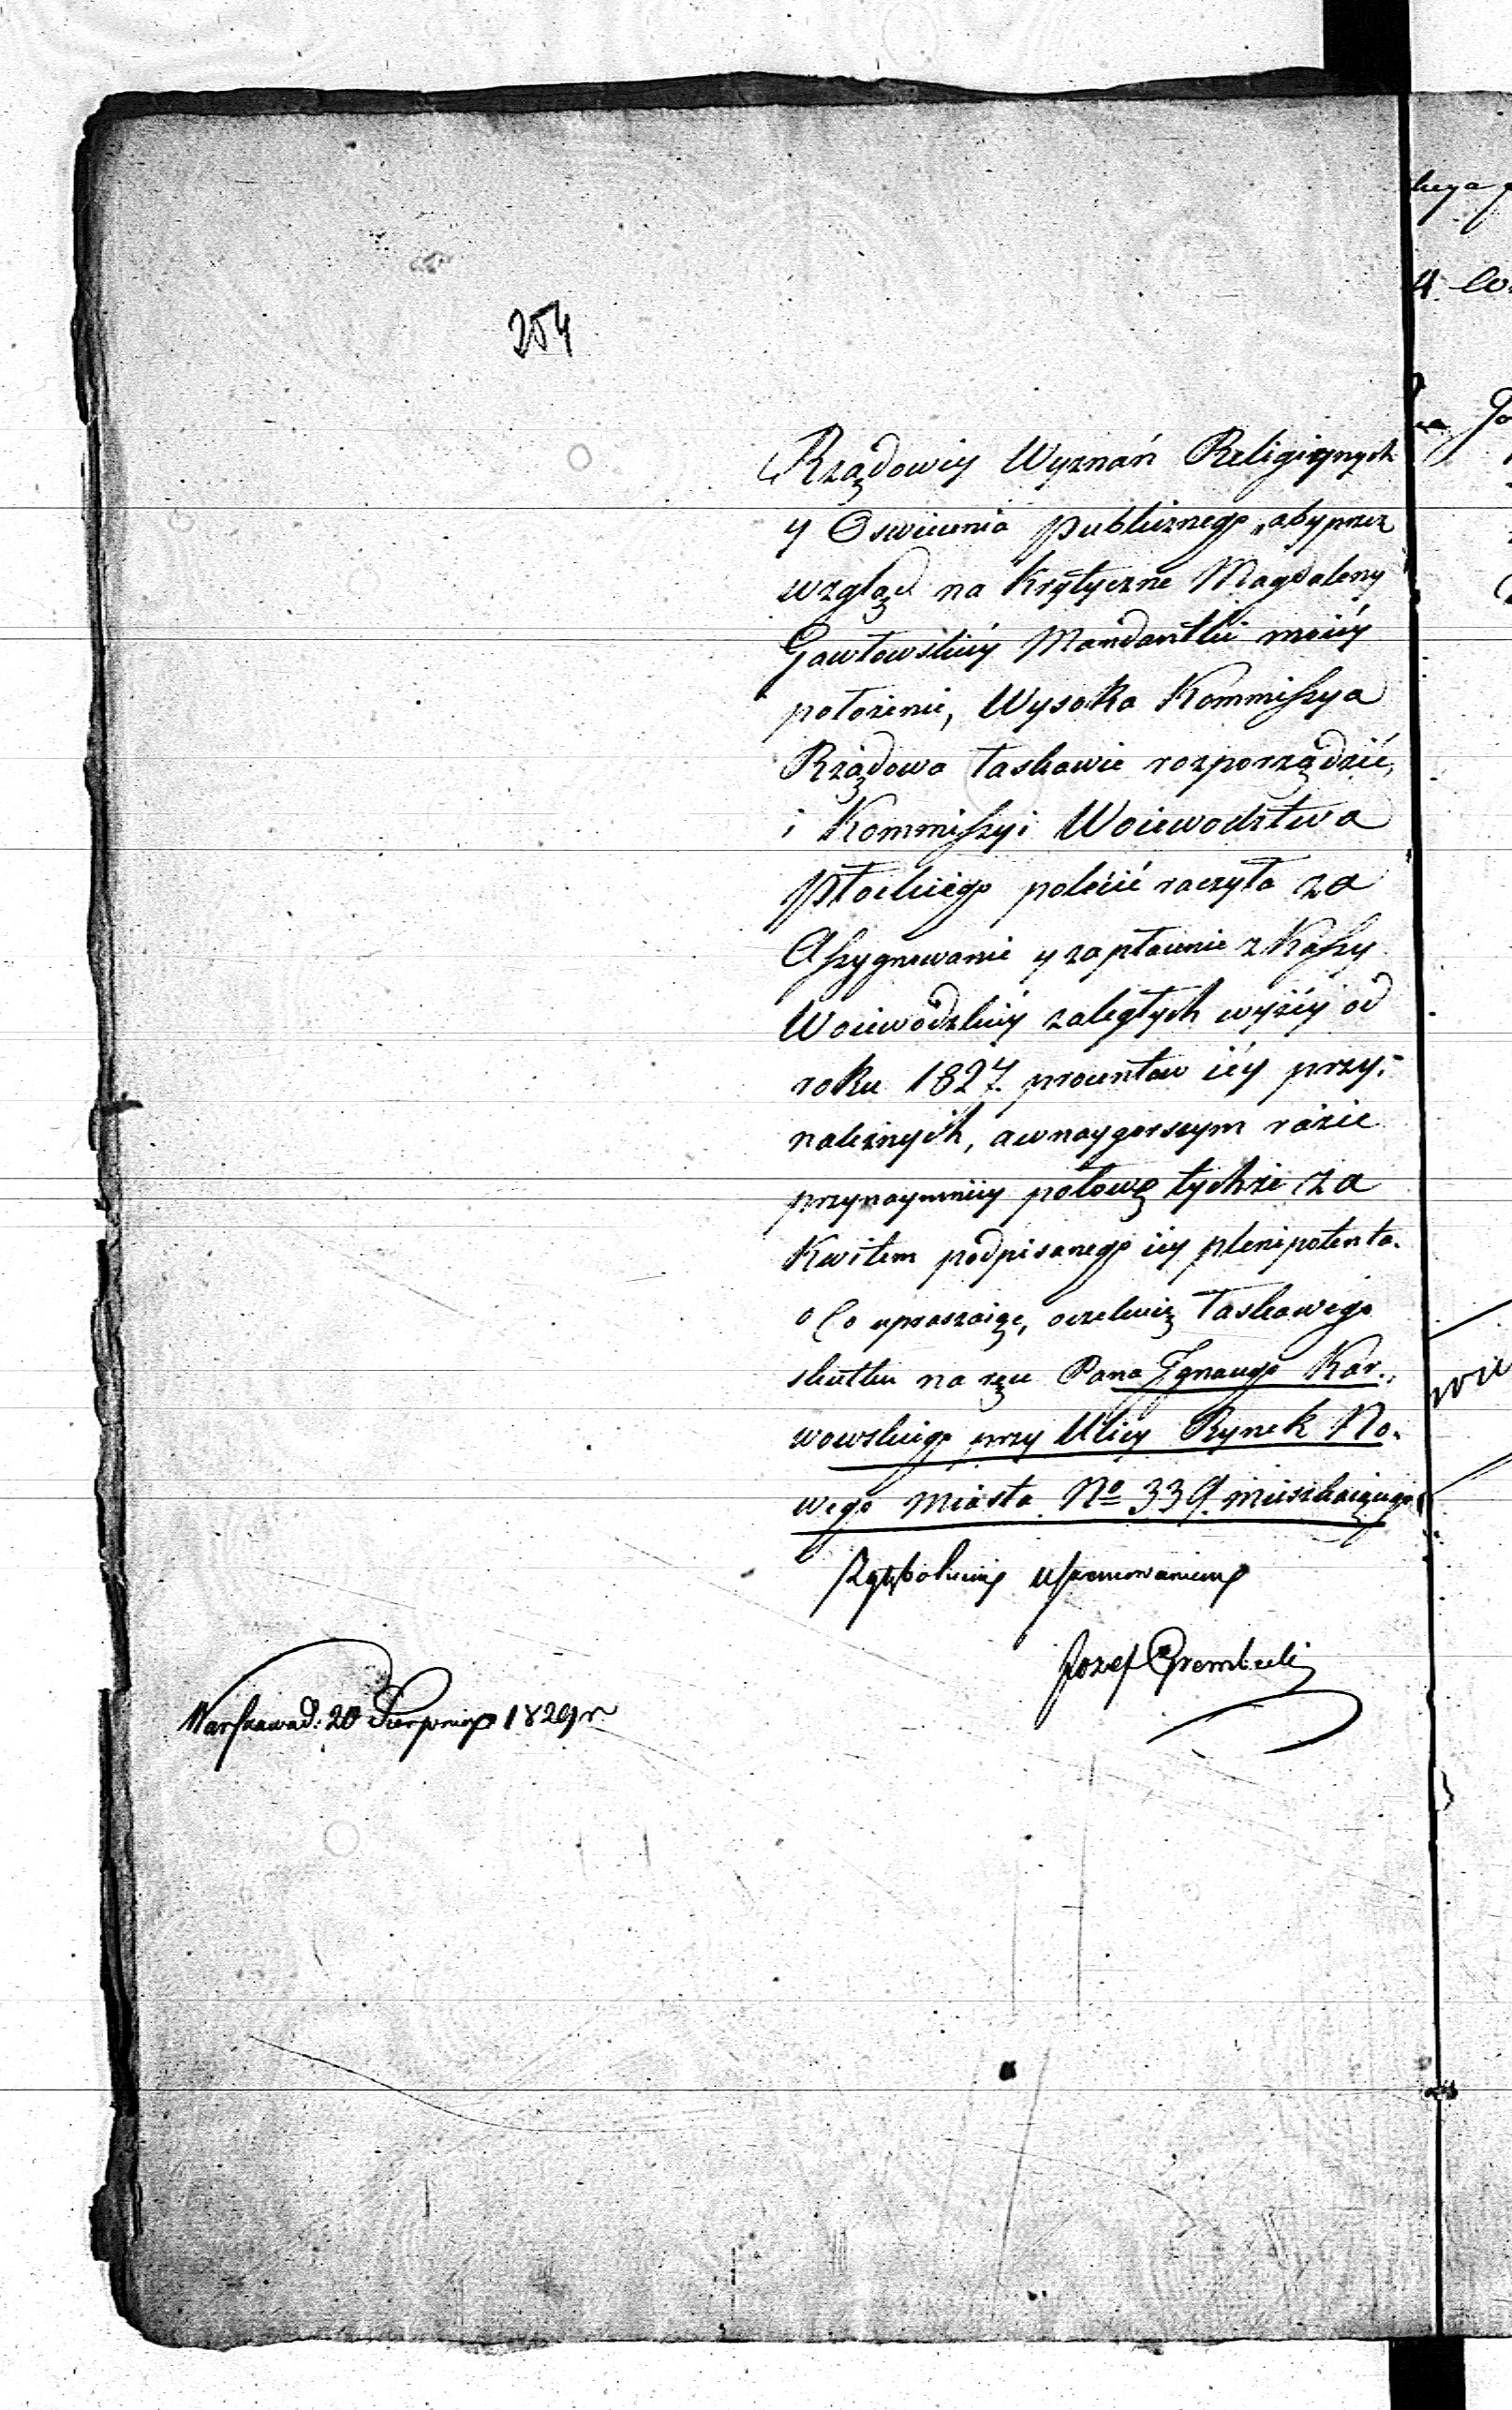 254
Rządowéy Wyznań Religiynych
y Oswiecenia publicznego, aby przez
wzgląd na krytyczne Magdaleny
Gawłowskiéy Mandantki moiéy
położenie, Wysoka Kommissya
Rządowa łaskawie rozporządzić,
i Kommissyi Woiewodztwa
Płockiego polécić raczyła za
Assygnowanie y zapłacenie z Kassy
Woiewódzkiéy zaległych wyżéy od
roku 1827. procentow iéy przy-
należnych, a w naygorszym razie
przynaymniéy połowę tychże za
Kwitem podpisanego iéy plenipotenta.
o Co upraszaiąc, oczekuię łaskawego
skutku na ręce Pana Ignacego Kar-
wowskiego przy Ulicy Rynek No-
wego Miasta No 339. mieszkaiącego
Z głębokiem uszanowaniem
Jozef Grembecki
Warszawa d: 20 Sierpnia 1829 r.